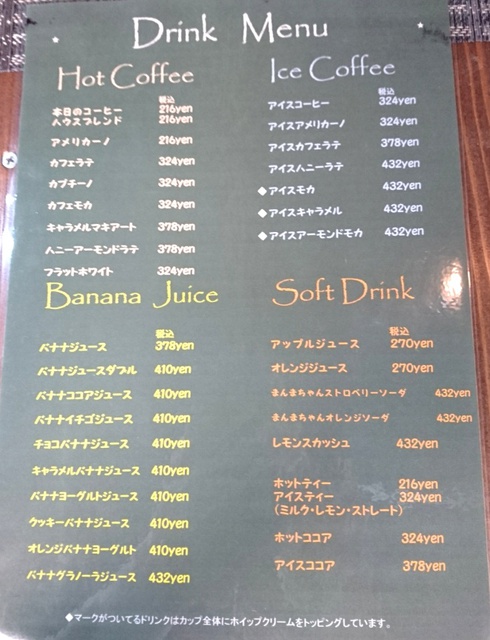 Drink Menu
Hot Coffee
税込
本日のコーヒー 216yen
ハウスブレンド 216yen
アメリカーノ 216yen
カフェラテ 324yen
カプチーノ 324yen
カフェモカ 324yen
キャラメルマキアート 378yen
ハニーアーモンドラテ 378yen
フラットホワイト 324yen
Ice Coffee
税込
アイスコーヒー 324yen
アイスアメリカーノ 324yen
アイスカフェラテ 378yen
アイスハニーラテ 432yen
◆アイスモカ 432yen
◆アイスキャラメル 432yen
◆アイスアーモンドモカ 432yen
Banana Juice
税込
バナナジュース 378yen
バナナジュースダブル 410yen
バナナココアジュース 410yen
バナナイチゴジュース 410yen
チョコバナナジュース 410yen
キャラメルバナナジュース 410yen
バナナヨーグルトジュース 410yen
クッキーバナナジュース 410yen
オレンジバナナヨーグルト 410yen
バナナグラノーラジュース 432yen
Soft Drink
税込
アップルジュース 270yen
オレンジジュース 270yen
まんまちゃんストロベリーソーダ 432yen
まんまちゃんオレンジソーダ 432yen
レモンスカッシュ 432yen
ホットティー 216yen
アイスティー 324yen
(ミルク・レモン・ストレート)
ホットココア 324yen
アイスココア 378yen
◆マークがついてるドリンクはカップ全体にホイップクリームをトッピングしています。